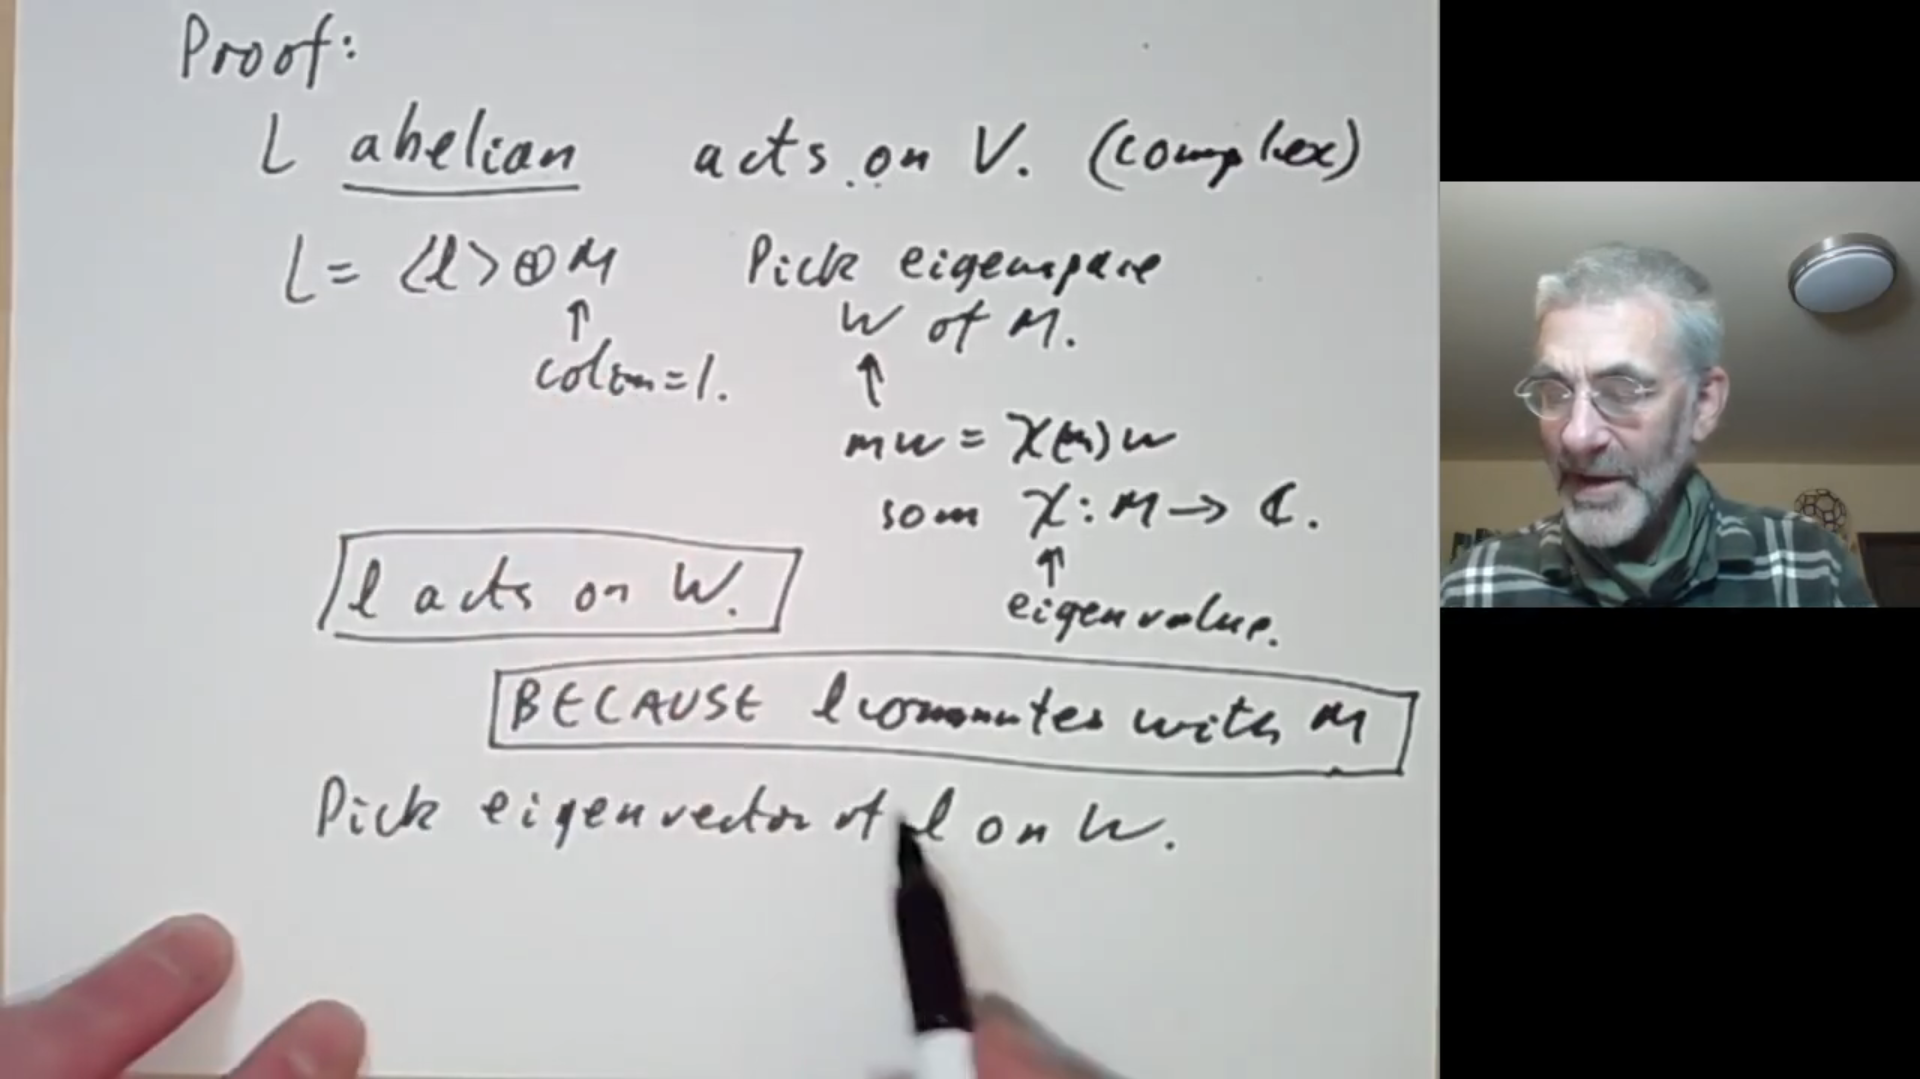 Proof:
L abelian acts on V. (complex)
L = <l> ⊕ M Pick eigenspace
W of M.
↑
codim = 1.
↑
mw = χ(m)w
som χ: M → ℂ.
↑
eigenvalue.
l acts on W.
BECAUSE l commutes with M
Pick eigenvector of l on W.